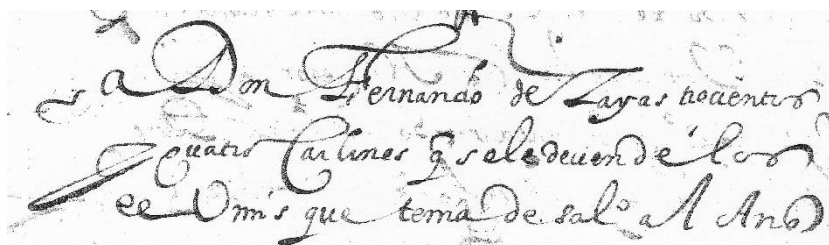 a Don Fernando de Zayas trocientos
y quatro Carlines q se le devien de los
que tenia de sal.º al Año